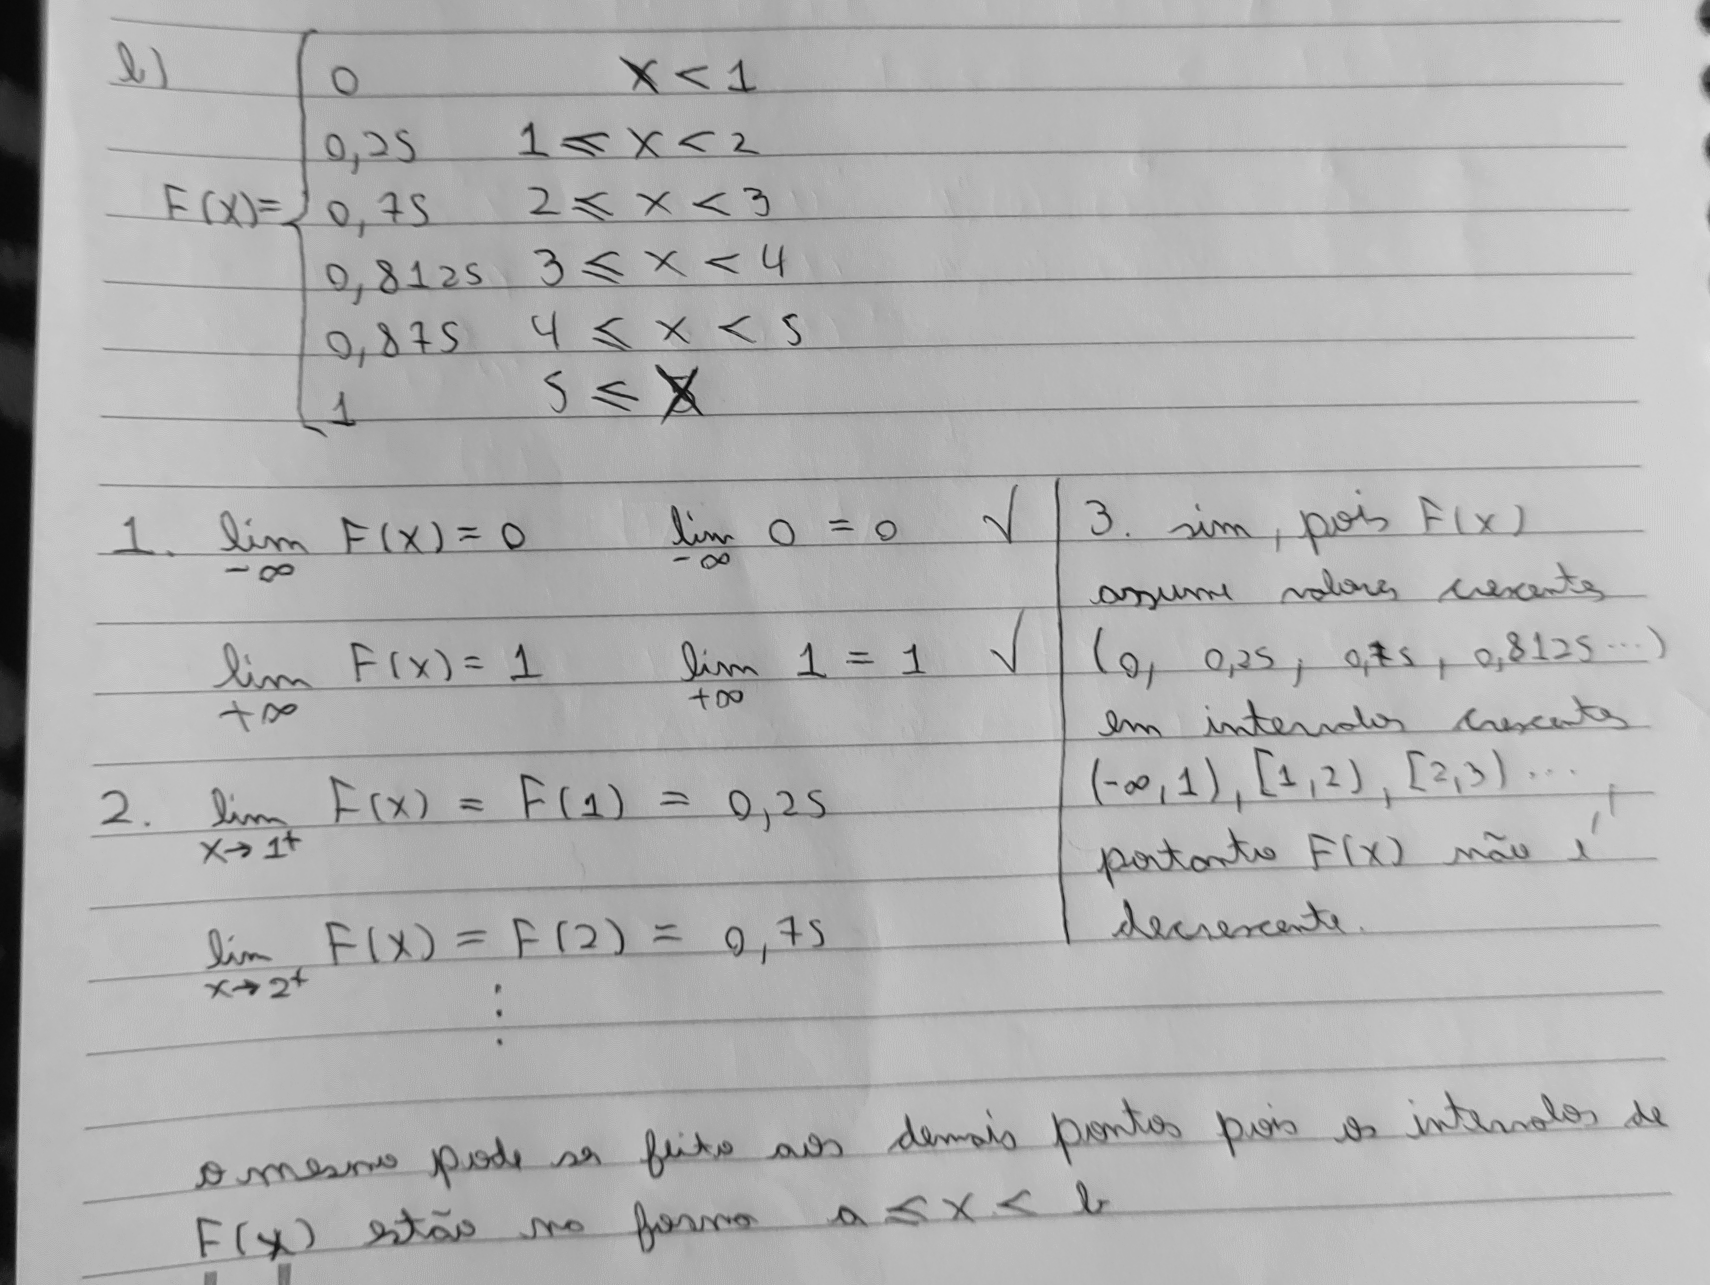 b)
F(x) = { 0 x < 1
0,25 1 ≤ x < 2
0,75 2 ≤ x < 3
0,8125 3 ≤ x < 4
0,875 4 ≤ x < 5
1 5 ≤ x
1. lim F(x) = 0 lim 0 = 0 √
-∞ -∞
lim F(x) = 1 lim 1 = 1 √
+∞ +∞
2. lim F(x) = F(1) = 0,25
x→1⁺
lim F(x) = F(2) = 0,75
x→2⁺
⋮
3. sim, pois F(x)
assume valores crescentes
(0, 0,25, 0,75, 0,8125...)
em intervalos crescentes
(-∞,1), [1,2), [2,3) ...,
portanto F(x) não é
decrescente.
o mesmo pode ser feito aos demais pontos pois os intervalos de
F(x) estão na forma a ≤ x < b